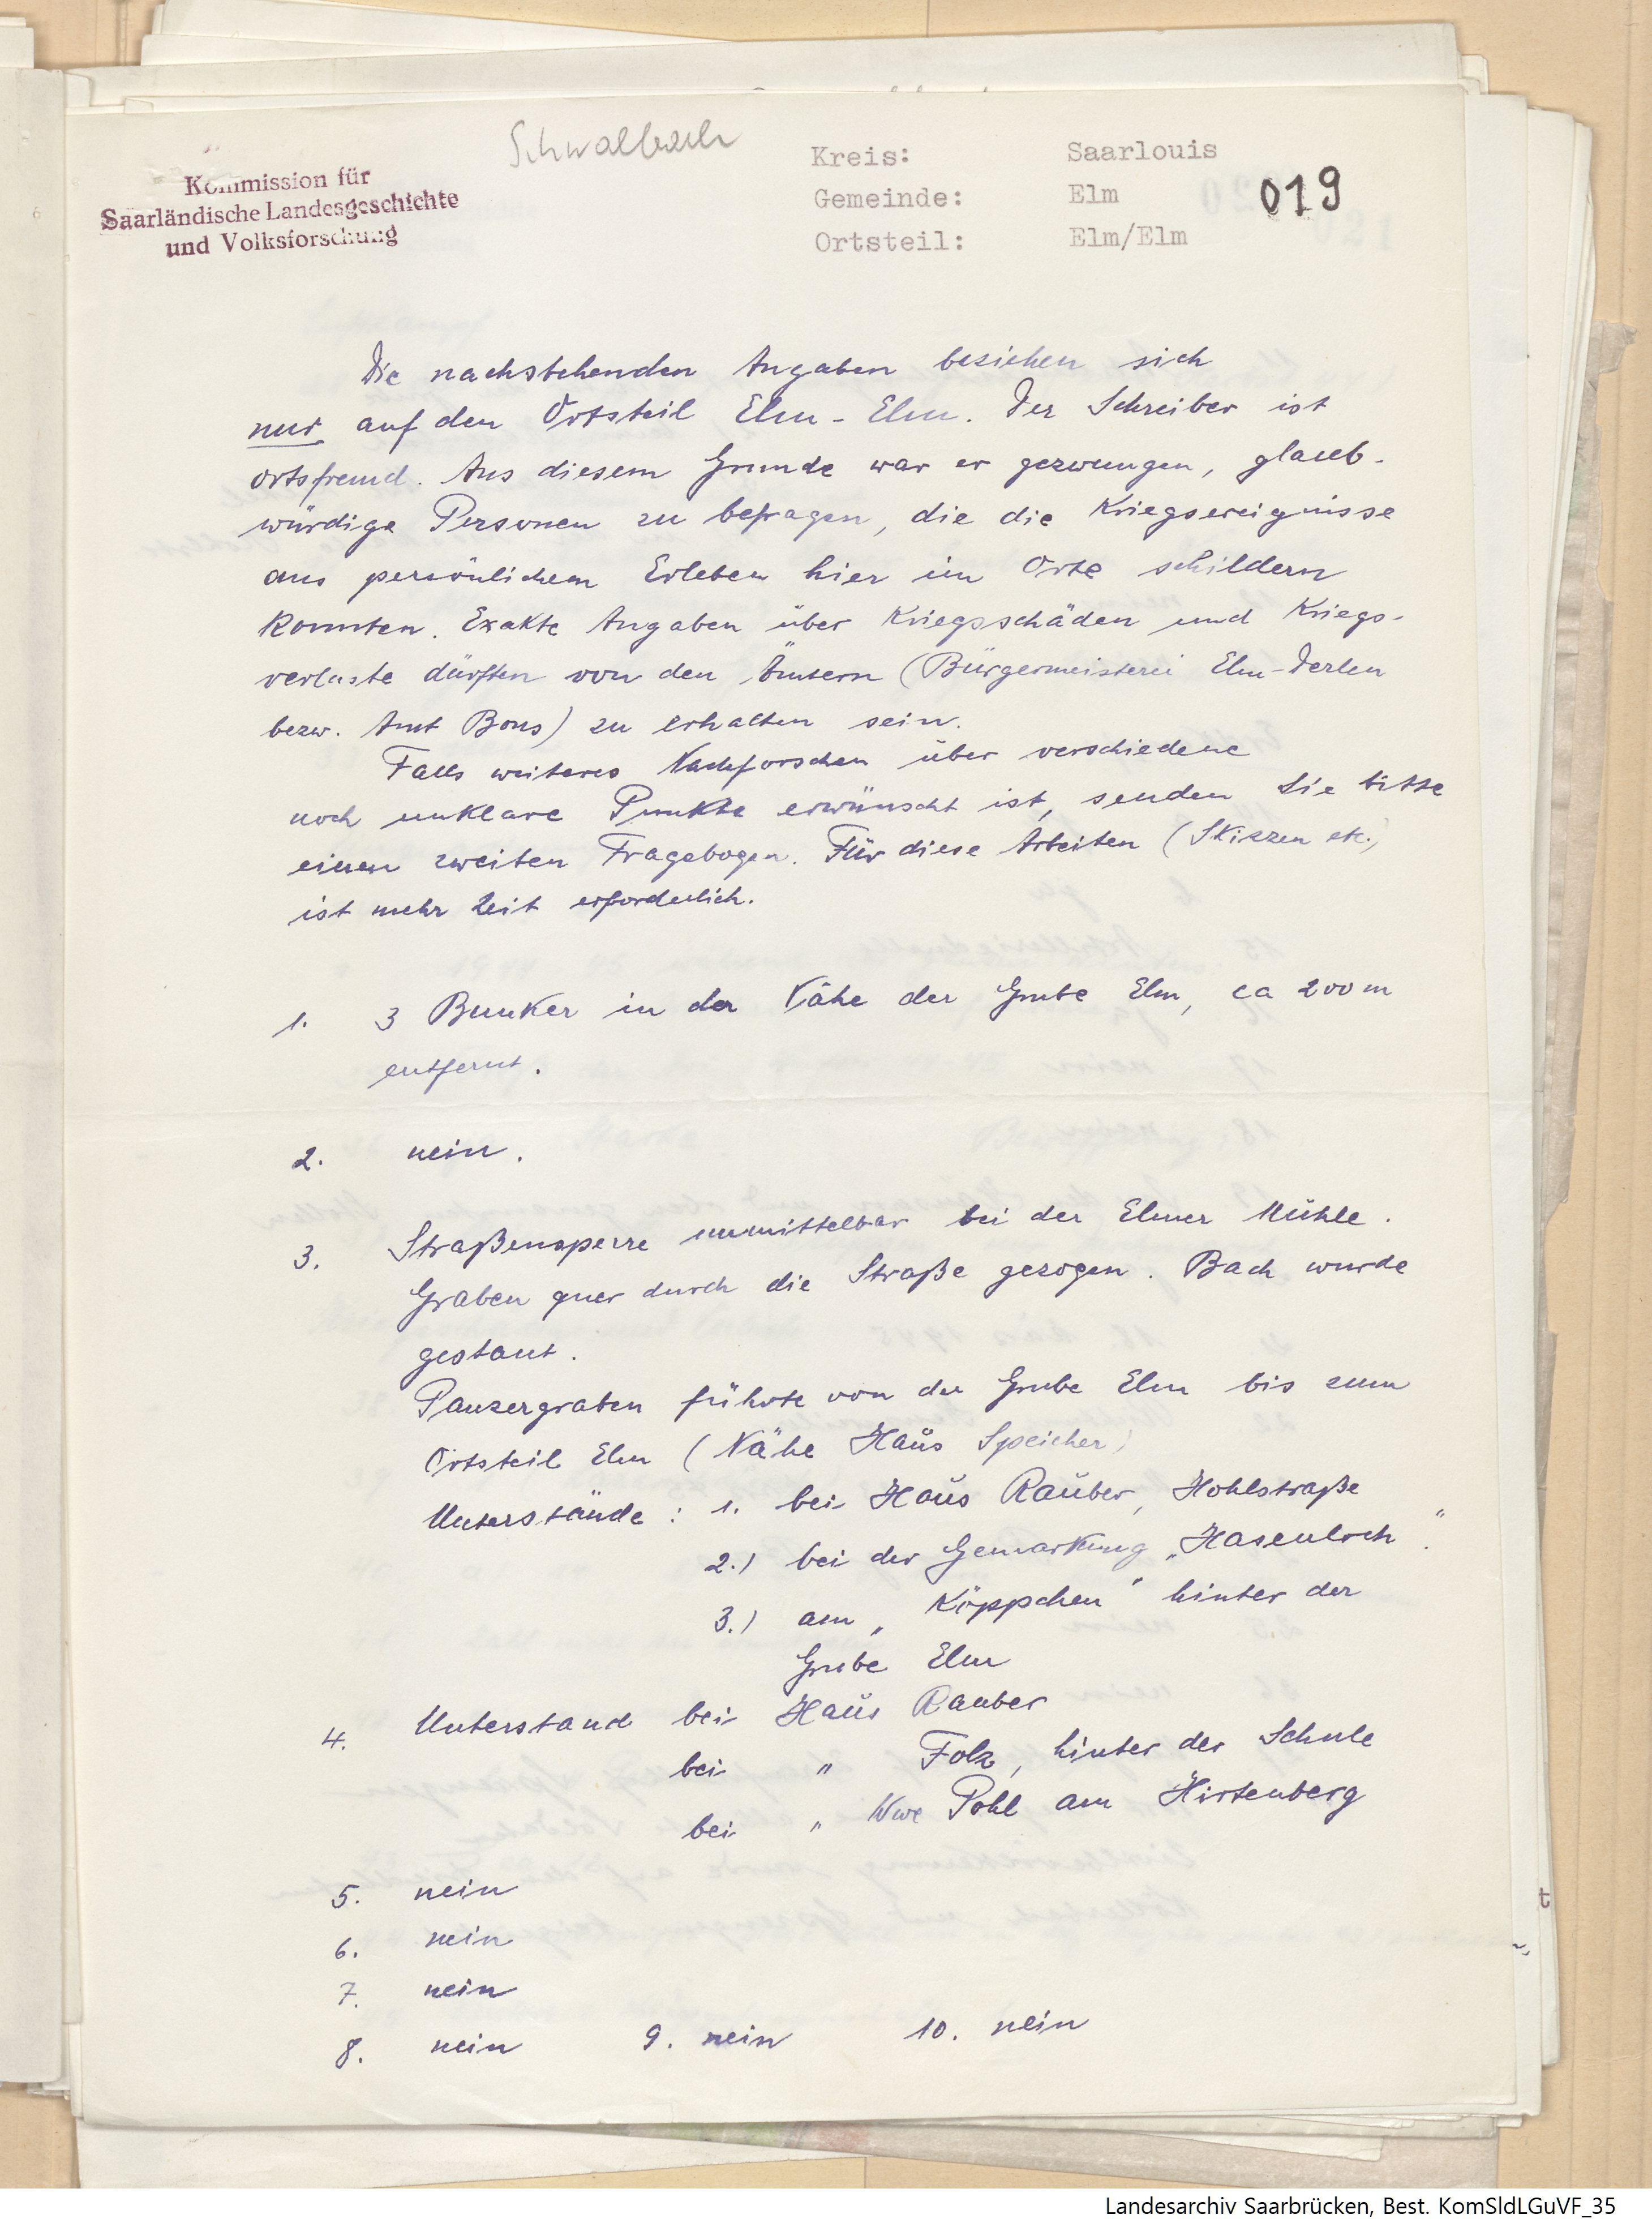 Schwalbach
Kommission für
Saarländische Landesgeschichte
und Volksforschung
Kreis: Saarlouis
Gemeinde: Elm
Ortsteil: Elm/Elm
019
Die nachstehenden Angaben beziehen sich
nur auf den Ortsteil Elm-Elm. Der Schreiber ist
ortsfremd. Aus diesem Grunde war er gezwungen, glaub-
würdige Personen zu befragen, die die Kriegsereignisse
aus persönlichem Erleben hier im Orte schildern
konnten. Exakte Angaben über Kriegsschäden und Kriegs-
verluste dürften von den Ämtern (Bürgermeisterei Elm-Derlen
bezw. Amt Bous) zu erhalten sein.
Falls weiteres Nachforschen über verschiedene
noch unklare Punkte erwünscht ist, senden Sie bitte
einen zweiten Fragebogen. Für diese Arbeiten (Skizzen etc.)
ist mehr Zeit erforderlich.
1. 3 Bunker in der Nähe der Grube Elm, ca 200 m
entfernt.
2. nein.
3. Straßensperre unmittelbar bei der Elmer Mühle.
Graben quer durch die Straße gezogen. Bach wurde
gestaut.
Panzergraben führte von der Grube Elm bis zum
Ortsteil Elm (Nähe Haus Speicher)
Unterstände: 1. bei Haus Rauber, Hohlstraße
2.) bei der Gemarkung „Hasenloch".
3.) am „Köppchen" hinter der
Grube Elm
4. Unterstand bei Haus Rauber
bei " Folz, hinter der Schule
bei " Wwe Pohl am Hirtenberg
5. nein
6. nein
7. nein
8. nein 9. nein 10. nein
t
Landesarchiv Saarbrücken, Best. KomSldLGuVF_35